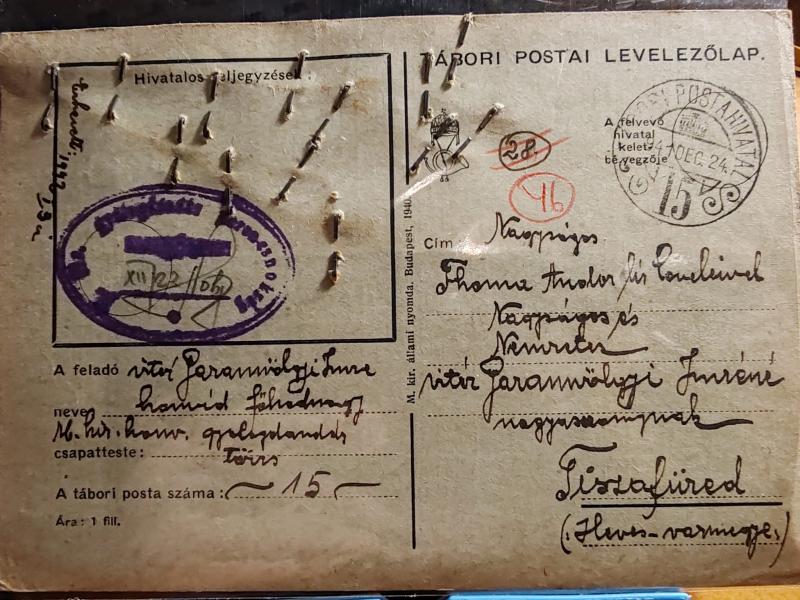 TÁBORI POSTAI LEVELEZŐLAP.
Hivatalos feljegyzések:
1942
A felvevő
hivatal
kelet-
bélyegzője
TÁBORI POSTAHIVATAL
41 DEC. 24.
15
28.
46
XII/23
M. kir. állami nyomda. Budapest, 1940.
Cím
Nagyságos
Thoma Andor úr
Nagyságos és
Nemzetes
vitéz Garamvölgyi Imréné
nagyasszonynak
Tiszafüred
(Heves-vármegye.)
A feladó vitéz Garamvölgyi Imre
neve: honvéd főhadnagy
M. kir. honv. gyalogdandár
csapatteste: Törzs
A tábori posta száma: 15
Ára: 1 fill.